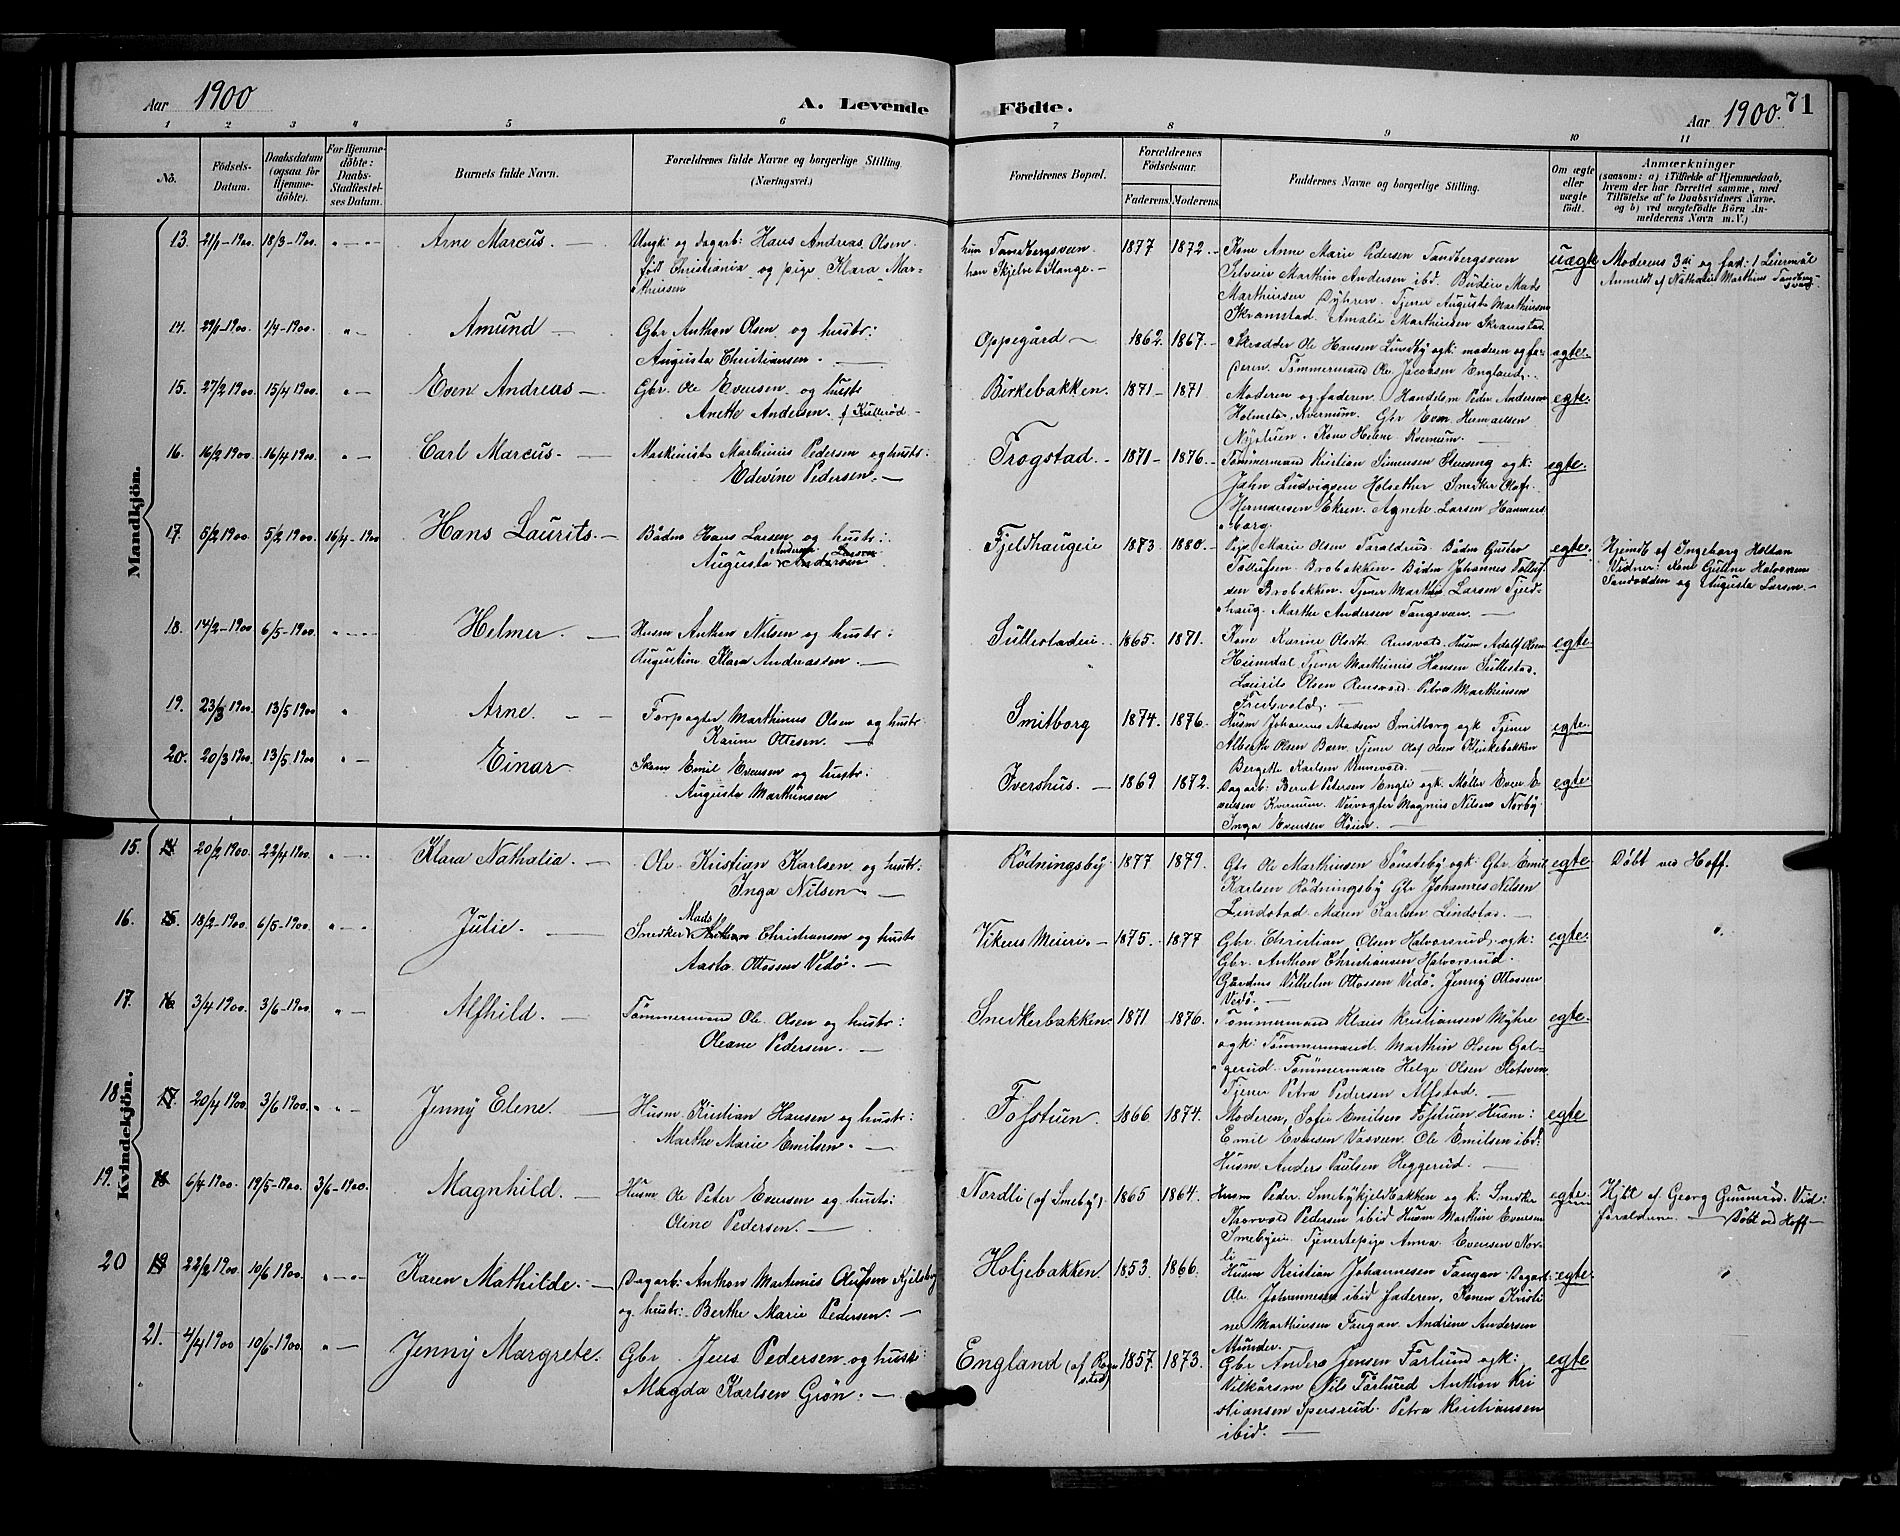 Aar 1900
A. Levende Födte.
Aar 1900. 71
1 2 3 4 5 6 7 8 9 10 11
No.
Födsels-Datum.
Daabsdatum (ogsaa for Hjemme-døbte).
For Hjemme-døbte: Daabs-Stadfæstel-ses Datum.
Barnets fulde Navn.
Forældrenes fulde Navne og borgerlige Stilling.
(Næringsvei.)
Forældrenes Bopæl.
Forældrenes Födselsaar.
Faderens. Moderens.
Faddernes Navne og borgerlige Stilling.
Om ægte eller uægte født.
Anmærkninger
(saasom: a) i Tilfælde af Hjemmedaab,
hvem der har forrettet samme, med
Tilføielse af to Daabsvidners Navne,
og b) ved uægtefödte Börn An-
melderens Navn m. V.)
Mandkjön.
13. 21/1-1900. 18/3-1900. Arne Marcus. Ungk: og dagarb: Hans Andreas Olsen
født Christiania og pige Klara Mar-
thinsen
hun Tandbergsveen
han Skjelve b Stange.
1877 1872.
Kone Anne Marie Pedersen Tandbergsveen
Marthin Andersen ibd. Budeie Mads
Marthinsen Dyhren. Tjener Augusta Marthinsen
Skramstad. Amalie Marthinsen Skramstad
uægte
Moderens 3die og fad: 1 Leiermål
Anmeldt af Nathalie Marthins Tandbergsveen
14. 29/1-1900. 1/4-1900. Amund Gbr Anthon Olsen og hustr:
Augusta Christiansen.
Oppegård 1862. 1867.
Skrædder Ole Hansen Lundby ogk: moderen og fa-
deren. Tömmermand Ole Jacobsen England.
ægte.
15. 27/2 1900. 15/4 1900. Even Andreas Gbr. Ole Evensen. og hustr
Anette Andersen. f Kullerød
Birkebakken. 1871 1871
Moderen og faderen. Handelsm Peder Andersen
Holmstad, Kvernum. Gbr Even Hermansen
Nystuen. Kone Helene Kvernum.
egte.
16. 16/2 1900. 16/4 1900. Carl Marcus. Maskinist Marthinus Pedersen og hustr:
Edevine Pedersen.
Frogstad. 1871 1876.
Tömmermand Kristian Simensen Stenseng ogk:
John Ludvigsen Holsether Snerker Olaf
Hermansen Ekren. Agnete Larsen Hammers-
borg.
egte.
17. 5/2 1900. 5/2 1900. 16/4-1900 Hans Laurits. Bådm Hans Larsen og hustr:
Augusta Andersen Larsen
Fjeldhaugeie 1873 1880.
Pige Marie Olsen Taraldrud. Bådm Gustav
Tollefsen Brobakken. Bådm Johannes Tollef
sen Brobakken. Tjener Marthin Larsen Fjeld-
haug. Marthe Andersen Tangsveen.
egte.
Hjemdt af Ingeborg Holtan
Vidner: Kone Guline Halvorsen
Sandodden og Augusta Larsen.
18. 14/2-1900 6/5-1900. Helmer. Husm Anthon Nilsen og hustr:
Augustine Klara Andreassen.
Sullestadeie 1865. 1871.
Kone Karine Rensvold. Husm Adolf Olsen
Heimdal Tjener Marthinus Hansen Sullestad
Laurits Olsen Rensvold. Petra Marthinsen
Fredsvold.
egte.
19. 23/3 1900. 13/5 1900 Arne. Forpagter Marthinus Olsen og hustr:
Karine Ottesen.
Smitborg 1874. 1876.
Husm Johannes Madsen Smitborg ogk Tjener
Alberth Olsen Bern. Tjener Olaf Olsen Birkebakken
Bergette Karlsen
egte.
20. 20/3 1900. 13/5 1900. Einar. Skom Emil Evensen og hustr:
Augusta Marthinsen
Ivershus. 1869 1872.
Dagarb: Bernt Petersen Engli ogk. Møller Even E-
vensen Kvernum. Veivogter Magnus Nilsen Norby
Inga Evensen
egte.
Kvindekjön.
15. 14 20/2 1900. 22/4 1900. Klara Nathalia. Ole Kristian Karlsen og hustr:
Inga Nilsen
Rødningsby 1877 1879.
Gbr Ole Marthinsen Sønsteby ogk: Gbr Emil
Karlsen Rödningsby Gbr Johannes Nilsen
Lindstad. Maren Karlsen Lindstad.
egte.
Döbt ved Hoff.
16. 15. 18/2-1900. 6/5-1900. Julie. Snedker Anthon Mads Christiansen og hustr
Aasta Ottossen Vedö.
Vikens Meieri. 1875. 1877
Gbr. Christian Olsen Halvorsrud. ogk:
Gbr. Anthon Christiansen Halvorsrud.
Gårdens Vilhelm Ottossen Vedö. Jenny Ottossen
Vedö.
egte.
17. 16 3/4 1900. 3/6-1900. Alfhild. Tömmermand Ole Olsen og hustr:
Oleane Pedersen.
Snedkerbakken. 1871 1876.
Tömmermand Klaus Kristiansen Myhre
ogk: Tömmermand Marthin Olsen Gal-
gerud. Tömmermand Helge Olsen Slotsveen
Tjener Petra Pedersen Alfstad.
egte.
18 17. 20/4 1900. 3/6 1900. Jenny Elene. Husm Kristian Hansen og hustr:
Marthe Marie Emilsen.
Fosstuen. 1866 1874.
Moderen, Sofie Emilsen Fosstuen Husm:
Emil Evensen Vasveen. Ole Emilsen ibd:
Husm Anders Paulsen Heggerud.
egte
19. 18 6/4 1900. 19/5-1900. 3/6-1900. Magnhild. Husm Ole Peter Evensen og hustr:
Oline Pedersen.
Nordli (af Smeby). 1865 1864.
Husm Peder Smebykjeldbakken og k: Smedker
Thorvald Pedersen ibid Husm Marthin Evensen
Smebyeie. Tjenestepige Anna Evensen Nor-
li
egte.
Hjdt af Georg Gunnerud. Vid:
forældrene. Döbt ved Hoff
20 19 22/2 1900. 10/6 1900. Karen Mathilde. Dagarb: Anthon Martinus Olufsen Kjelsby
og hustr: Berthe Marie Pedersen.
Holjebakken. 1853. 1866.
Husm Kristian Johannesen Faugan. Dagarb:
Ole Johannesen ibid faderen, Konen Kristi
ne Marthinsen Faugan. Andrine Andersen
Alunder.
egte.
21. 4/4 1900 10/6-1900. Jenny Margrete. Gbr Jens Pedersen og hustr:
Magda Karlsen Grön.
England (af Rognstad) 1857. 1873.
Gbr Anders Jensen Forlund ogk:
Vilkårsm Nils Forlund Anthon Kri
stiansen Spersrud. Petra Kristiansen
ibid.
egte